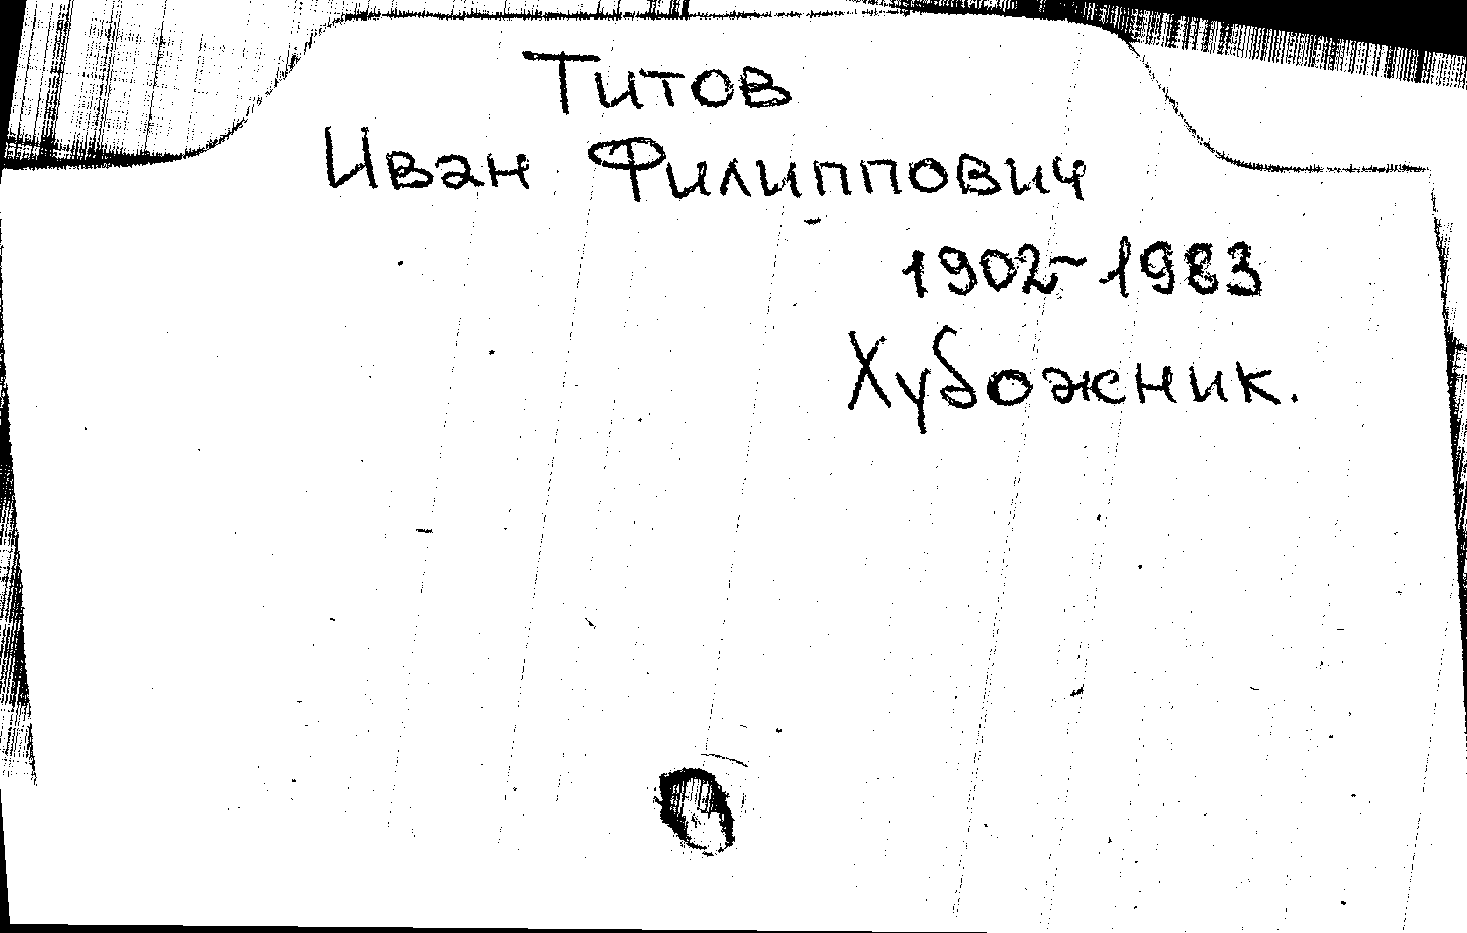 Титов
Иван Филиппович
1902-1983
Художник.